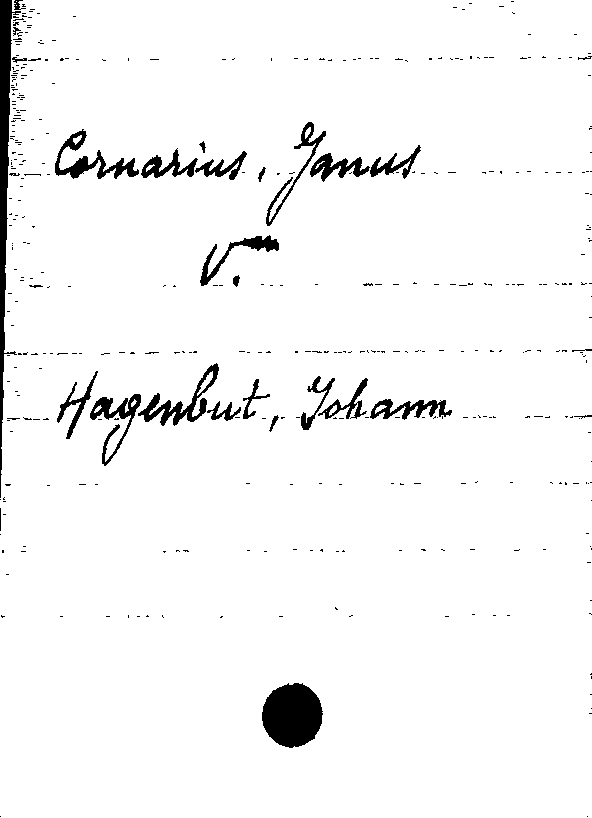 Cornarius, Janus
V.
Hagenbut, Johann